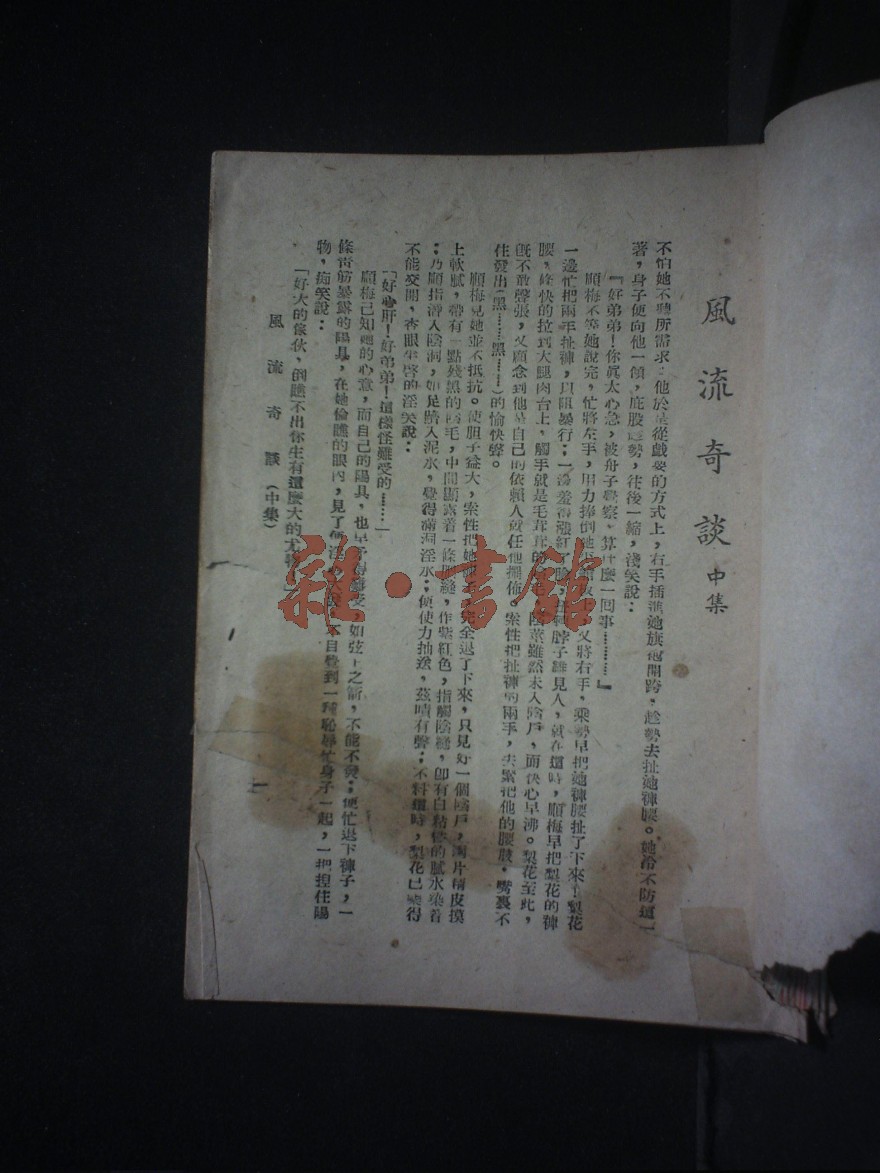 風流奇談 中集
不怕她不聽所需求；他於是從戲耍的方式上，右手插進她旗袍開跨，趁勢去扯她褲腰。她冷不防這一
著，身子便向他一傾，屁股趁勢，往後一縮，淺笑說：
『好弟弟！你真太心急，被舟子覺察，算什麼一回事………』
順梅不等她說完，忙將左手，用力捧倒她 又將右手，乘勢早把她褲腰扯了下來；梨花
一邊忙把兩手扯褲，以阻暴行；一邊羞得漲紅了臉， 脖子難見人，就在這時，順梅早把梨花的褲
腰，條快的拉到大腿肉台上，觸手就是毛茸茸的 陰莖雖然未入陰戶，而快心早沸。梨花至此，
既不敢聲張，又顧念到他是自己的依賴人就任他擺佈。索性把扯褲的兩手，去緊抱他的腰肢，嘴裏不
住發出（黑……黑……）的愉快聲。
順梅見她並不抵抗。使胆子益大，索性把她 完全退了下來，只見好一個陰戶，兩片精皮摸
上軟膩，帶有一點殘黑的陰毛，中間顯露着一條陰縫，作紫紅色，指觸陰縫，即有白粘 的膩水染着
；乃順指滑入陰洞，如足踏入泥水，覺得滿洞淫水；便使力抽送，茲嘖有聲；不料這時，梨花已樂得
不能交開，杏眼半啓的淫笑說：
「好心肝！好弟弟！這樣怪難受的……」
順梅已知她的心意，而自己的陽具，也早 得難受，如弦上之箭，不能不發；便忙退下褲子，一
條青筋暴露的陽具，在她偷瞧的眼內，見了便淫 不自覺到一種恥辱忙身子一起，一把捏住陽
物，痴笑說：
「好大的傢伙，倒瞧不出你生有這麼大的尤物」
風流奇談（中集）
一
雜·書館